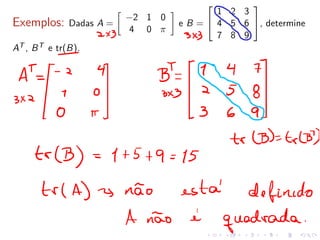 Exemplos: Dadas A = [ −2 1 0 ; 4 0 π ] e B = [ 1 2 3 ; 4 5 6 ; 7 8 9 ] , determine
2x3 3x3
Aᵀ, Bᵀ e tr(B).
Aᵀ = [ -2 4 ; 1 0 ; 0 π ] Bᵀ = [ 1 4 7 ; 2 5 8 ; 3 6 9 ]
3x2 3x3
tr(B) = tr(Bᵀ)
tr(B) = 1+5+9 = 15
tr(A) → não está definido
A não é quadrada.